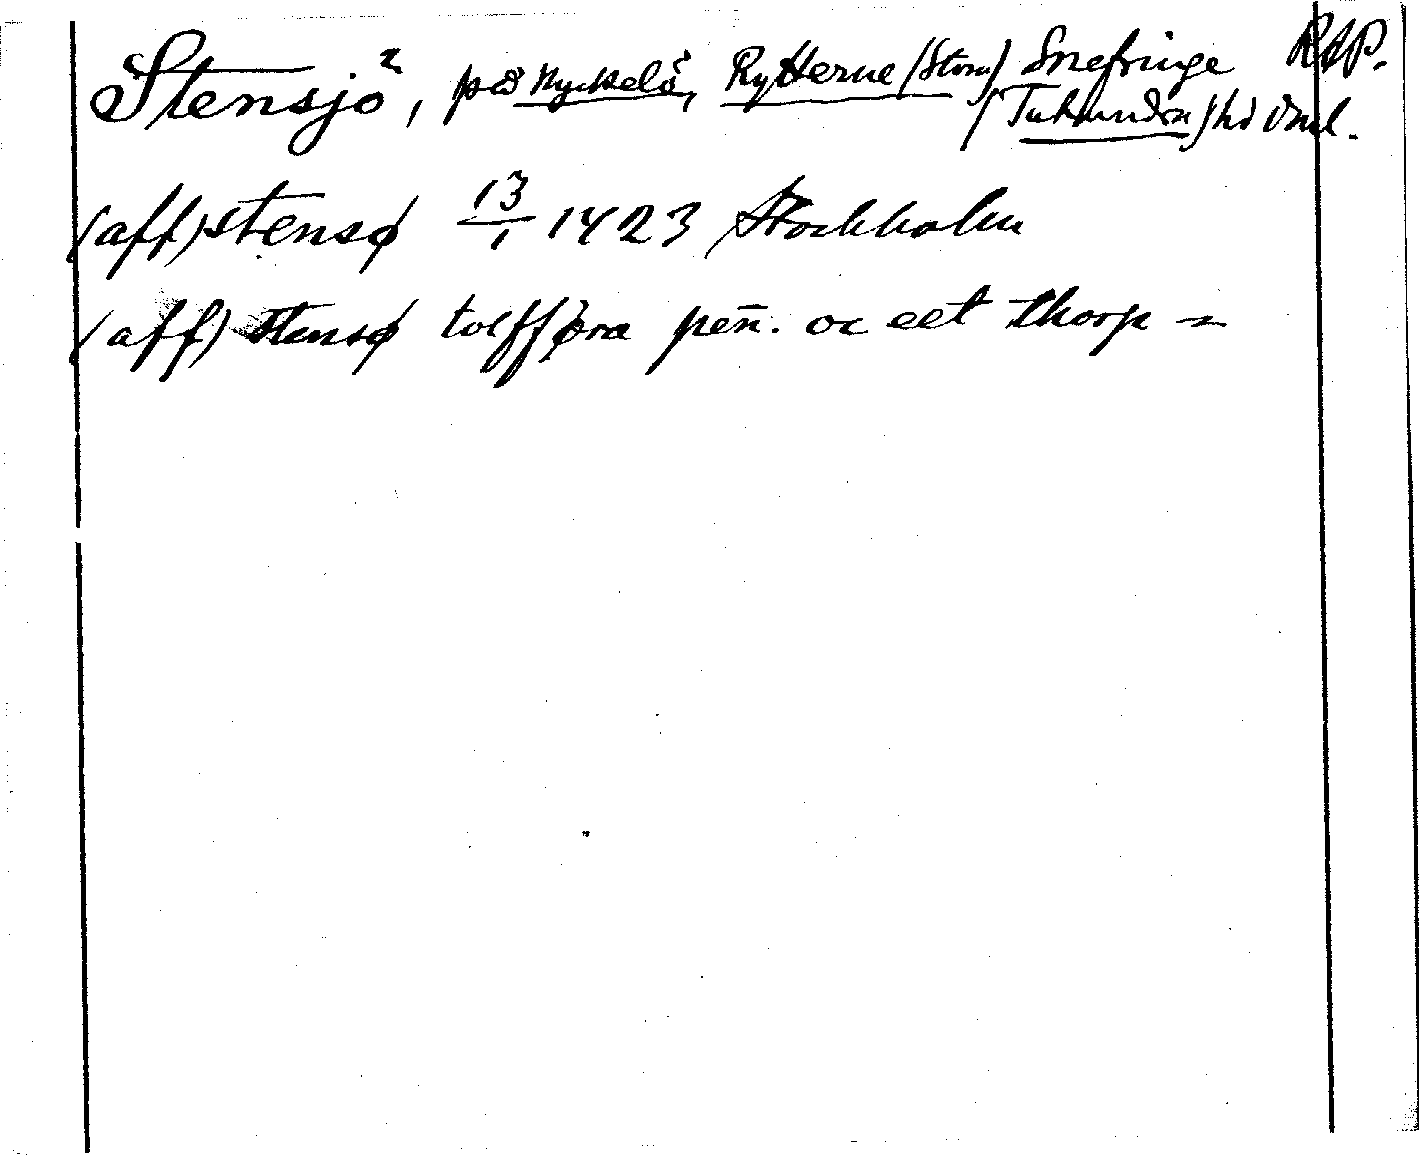 Stensjö, på Nyckelö, Rytterne (Stora) Snefringe RAP.
(Tuhundra) hd Vml.
(aff) stensø 13/1 1423 Stockholm
(aff) stensø tolff øra pen̄. oc eet thorp =